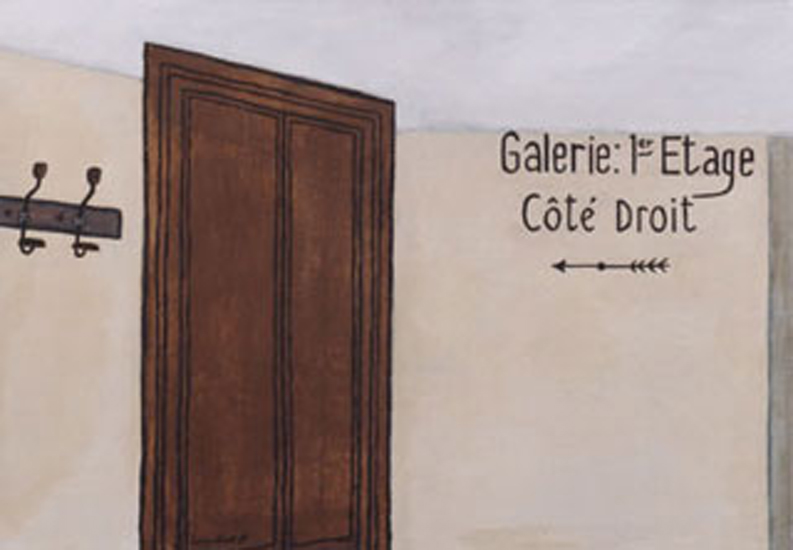 Galerie: 1er Etage
Côté Droit